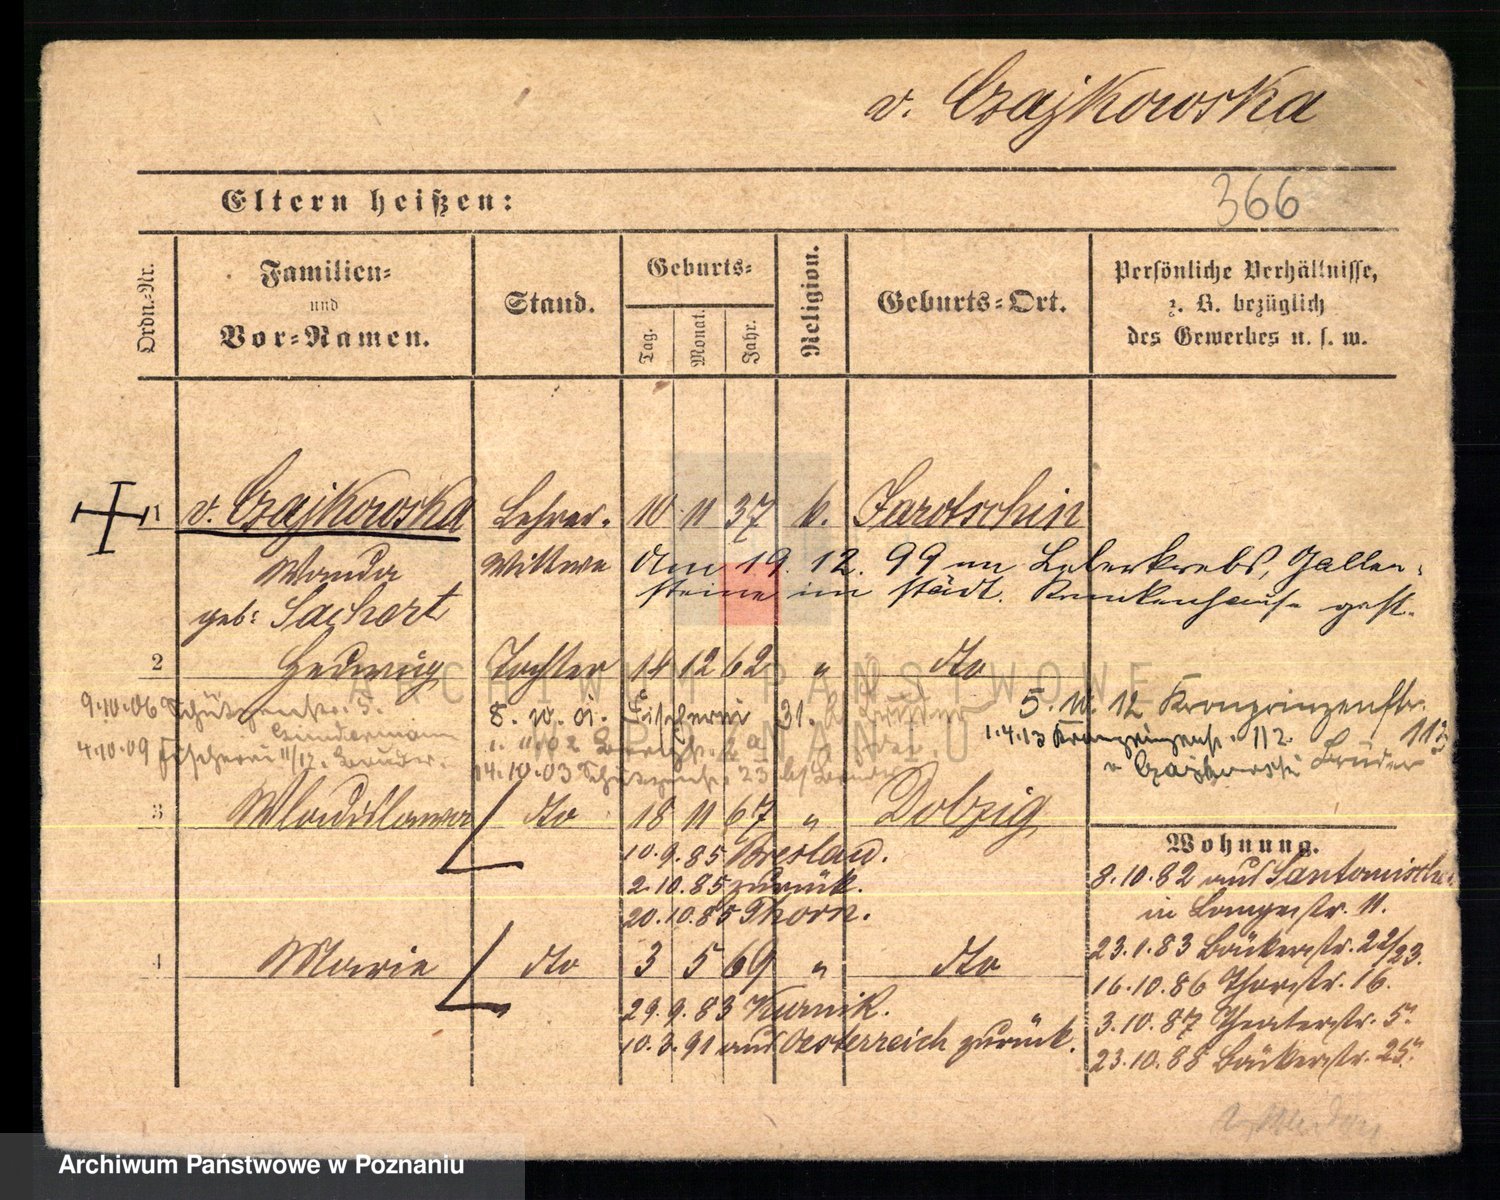 v. Czajkowska
366
Eltern heißen:
Ordn.-Nr.
Familien-
und
Vor-Namen.
Stand.
Geburts-
Tag.
Monat.
Jahr.
Religion.
Geburts-Ort.
Persönliche Verhältnisse,
z. B. bezüglich
des Gewerbes u. s. w.
1 v. Czajkowska Lehrer- 10 11 37 k. Jarotschin
Wanda Wittwe Am 19. 12. 99 an Leberkrebs, Gallen-
geb: Sachert steine im städt. Krankenhause gest.
2 Hedwig Tochter 14 12 62 " dto
9.10.06 Schützenstr. 5. 8. 10. 01. Fischerei 31. 5. 11. 12 Kronprinzenstr.
112
4.10.09 Fischerei 11/12. 1.4.13 Kronprinzenstr. 112
14.10.03 Schützenstr. 23 b/
v Czajkowski Brüder
3 Wladislawa dto 18 11 67 " Dolzig
10.9.85 Breslau.
2.10.85 zurück.
20.10.85 Thorn.
4 Marie dto 3 5 69 " dto
29.9.83 Kurnik.
10.3.91 aus Oesterreich zurück.
Wohnung.
8.10.82 aus Santomischel
in Langestr. 11.
23.1.83 Bäckerstr. 22/23.
16.10.86 Thorstr. 16.
3.10.87 Theaterstr. 5.
23.10.88 Bäckerstr. 25.
ARCHIWUM PAŃSTWOWE
W POZNANIU
Archiwum Państwowe w Poznaniu